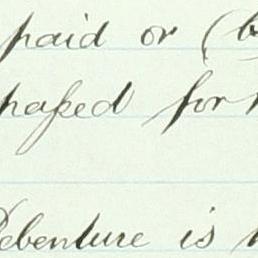 paid or (b
passed for
Debenture is